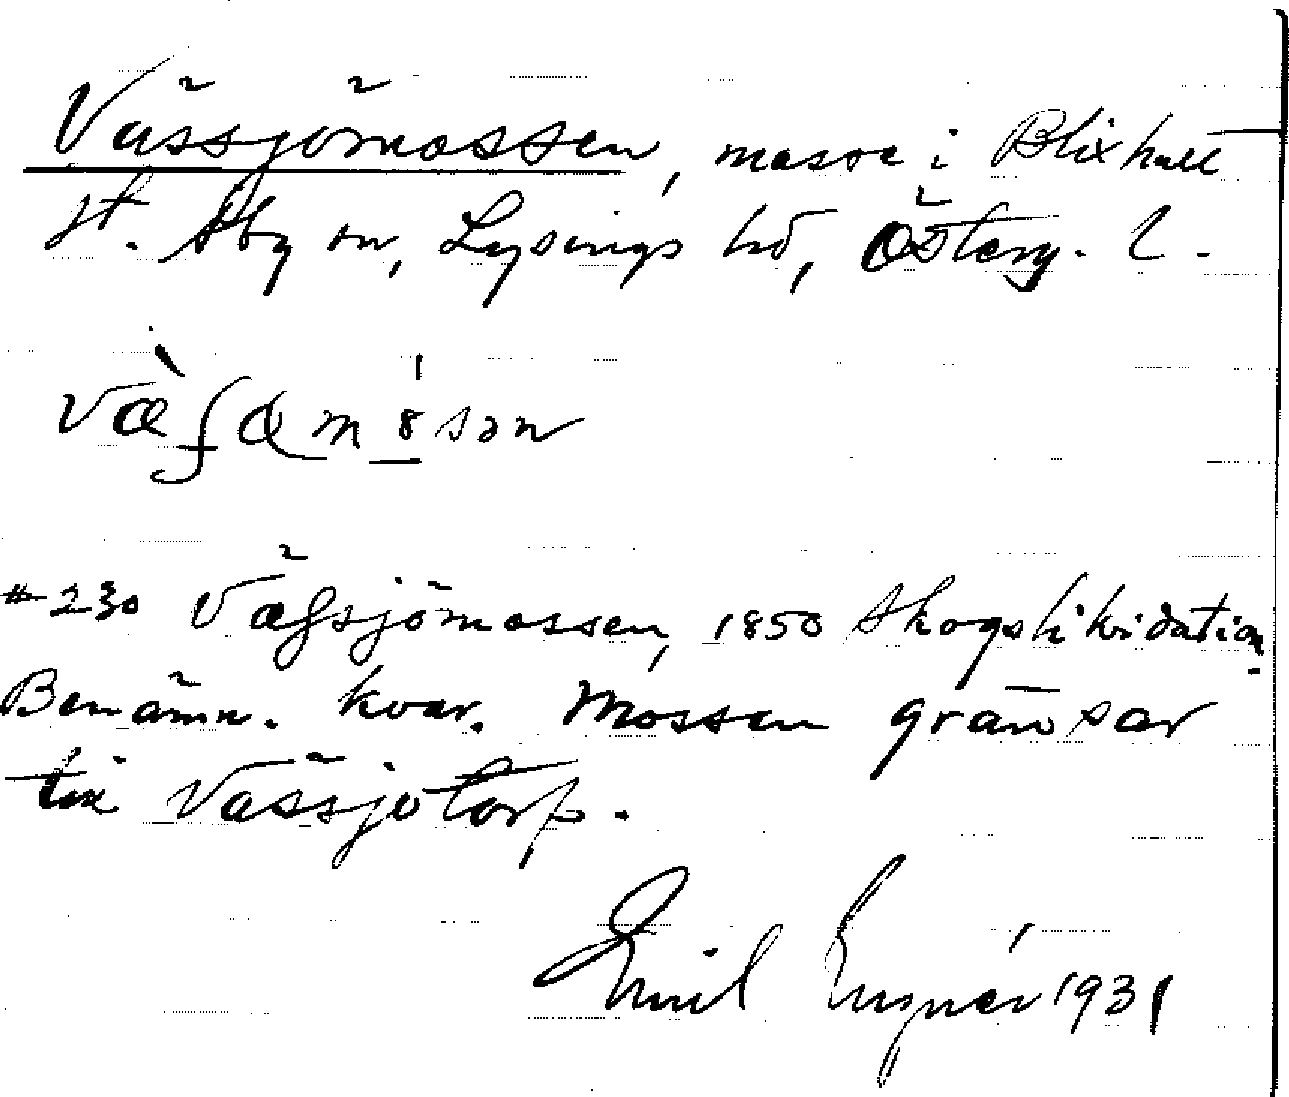 Vässjömossen, mosse i Blixhult
st. Åby sn, Lysings hd, Österg. l.
væ̀ʃəmȣsən
#230 Vägsjömossen, 1850 Skogslikvidation
Benämn. kvar. Mossen gränsar
till Vässjötorp.
Emil 1931